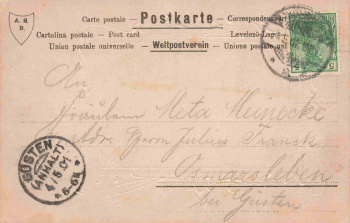 A. S. B.
Carte postale - Postkarte - Correspondenzkarte
Cartolina postale - Post card Levelező-Lap
Union postale universelle - Weltpostverein - Unione postale
5
An
Fräulein Meta Heinecke
Adr. Herrn Julius Franck
Osmarsleben
bei Güsten
GÜSTEN
(ANHALT)
4/5 01
6-6¾